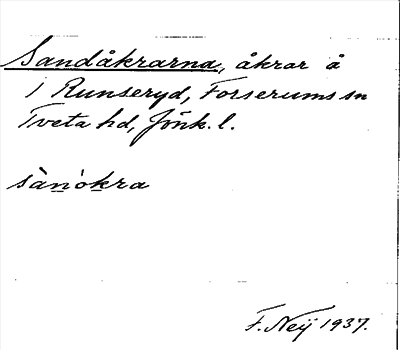 Sandåkrarna, åkrar å
1 Runseryd, Forserums sn
Tveta hd, Jönk. l.
sànòkra
F. Neij 1937.